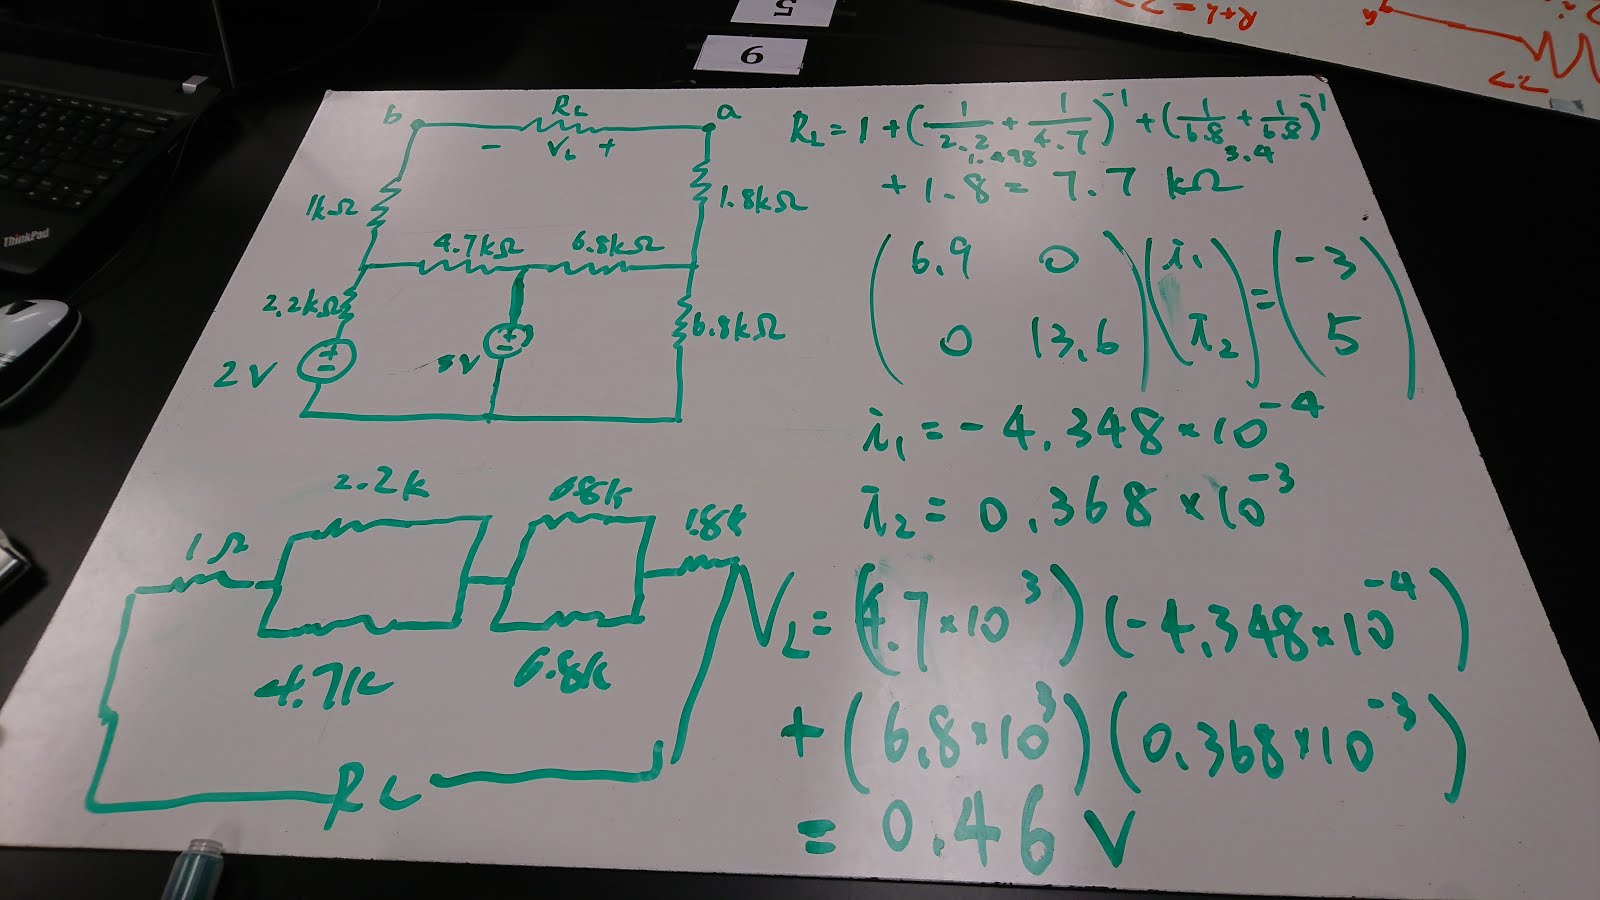 5
6
R+L = 27
27
ThinkPad
b
RL
a
- VL +
1kΩ
1.8kΩ
4.7kΩ
6.8kΩ
2.2kΩ
6.8kΩ
+
-
2V
+
-
5V
RL = 1 + (1/2.2 + 1/4.7)^-1 + (1/6.8 + 1/6.8)^-1
1.498
3.4
+ 1.8 = 7.7 kΩ
(6.9 0) (i1) = (-3)
(0 13.6) (i2) (5)
i1 = -4.348×10^-4
i2 = 0.368×10^-3
2.2k
6.8k
1Ω
1.8k
4.7k
6.8k
RL
VL = (4.7×10^3)(-4.348×10^-4)
+ (6.8×10^3)(0.368×10^-3)
= 0.46 V